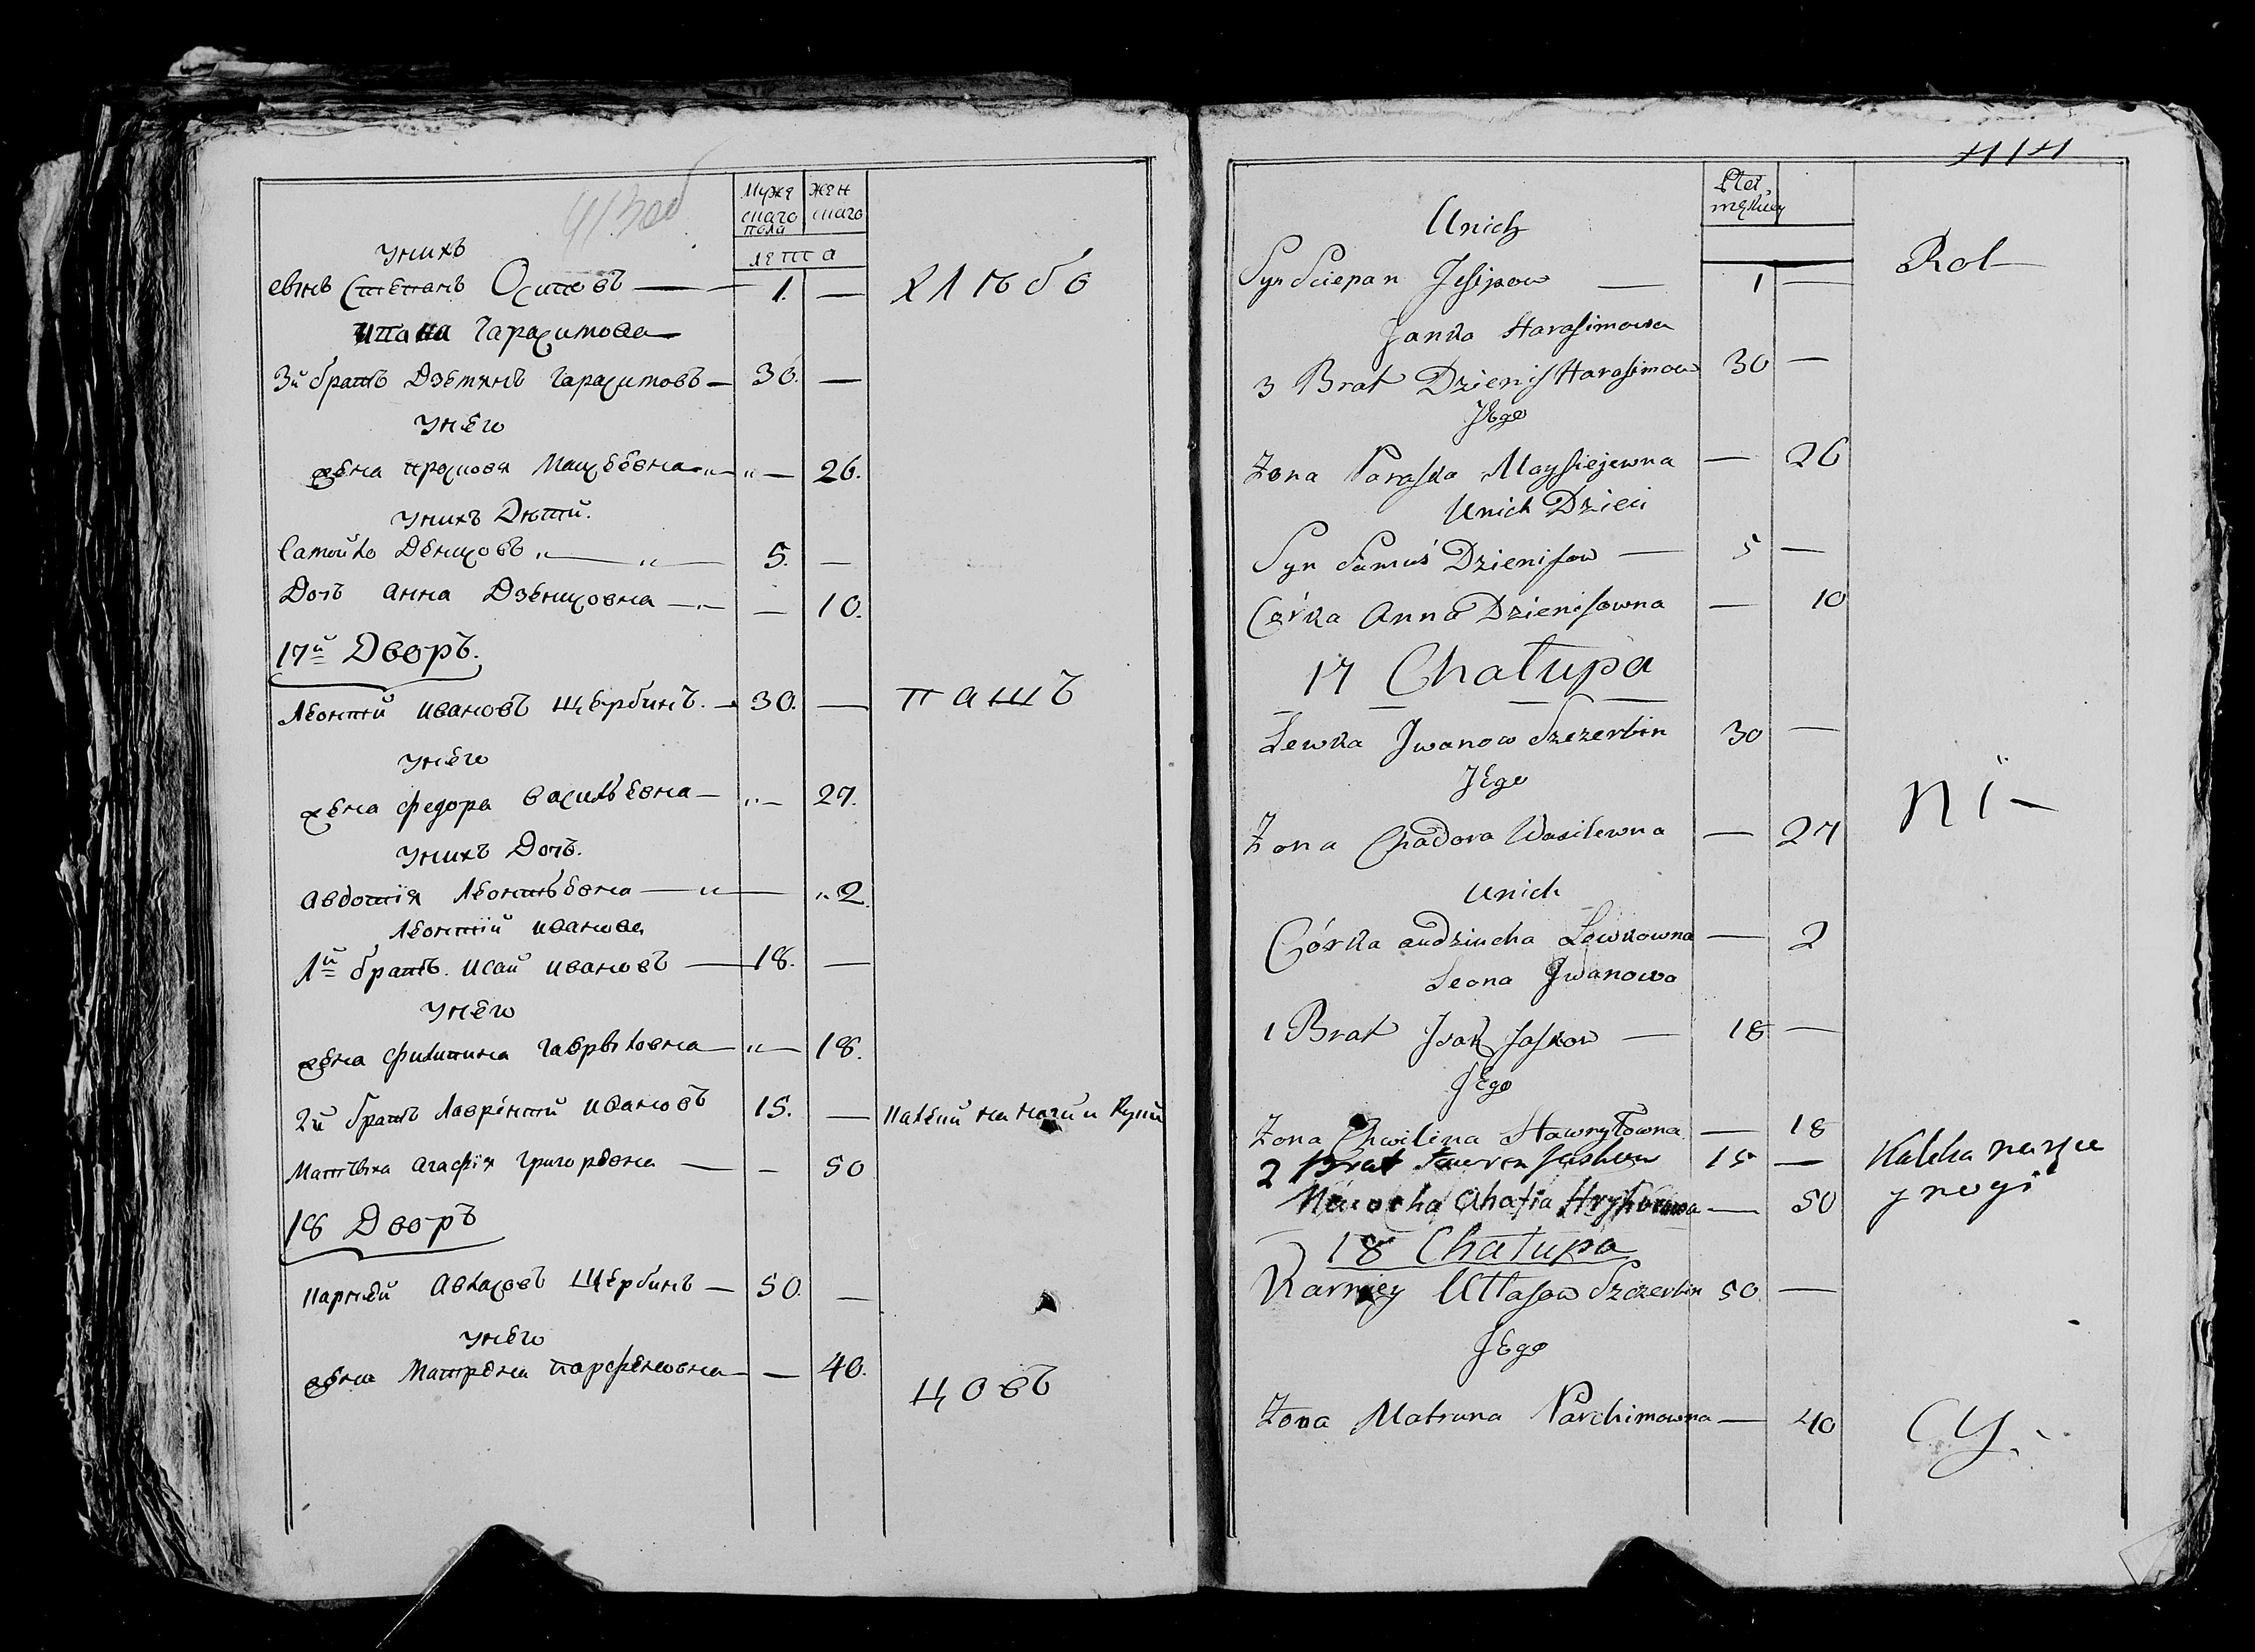 Муже
скаго
пола
жен
скаго
лета
у них
сынъ Степанъ Осиповъ — 1. —
хлѣбо
Гарасимова
3й братъ Дземянъ Гарасимовъ — 30. —
у него
жена Просковя Мацѣевна — 26.
у нихъ Дѣти.
Самойло Денисовъ — 5. —
Дочь Анна Дзенисовна — 10.
17й Дворъ.
Леонтий Ивановъ Щербинъ. — 30. —
пашъ
у него
жена Федора Васильевна — 27.
у нихъ Дочь.
Авдотія Леонтьевна — 2.
Леонтій Иванова
1й братъ. Исай Ивановъ — 18. —
у него
жена Филипина Гаврыловна — 18.
2й братъ Лаврентий Ивановъ 15. —
Матывка Агафія Григорьевна — 50
18 Дворъ
Парней Авласовъ Щербинъ — 50. —
у него
жена Матрена Парфеновна — 40.
цовъ
414
Unich
Syn Sciepan Jesipow — 1 —
Rol—
Janka Harasimowa
3 Brat Dzienis Harasimow 30 —
Jego
Zona Paraska Maysiejewna — 26
Unich Dzieci
Syn Samuś Dzienisow — 5 —
Córka Anna Dzienisowna — 10
17 Chałupa
Lewka Jwanow Szczerbin 30 —
Jego
ni—
Zona Chadora Wasilewna — 27
Unich
Córka Audziucha Lewkowna — 2
Leona Jwanowa
1 Brat Jsak Jaskow — 18 —
Jego
Zona Chwilina Hawryłowna — 18
2 Brat Jaskow 15 —
Kaleka na ręce
y nogi
Macocha Ahafia — 50
18 Chałupa
Karniey Ułłasow Szczerbin 50 —
Jego
Zona Matruna Parchimowna — 40
cy.